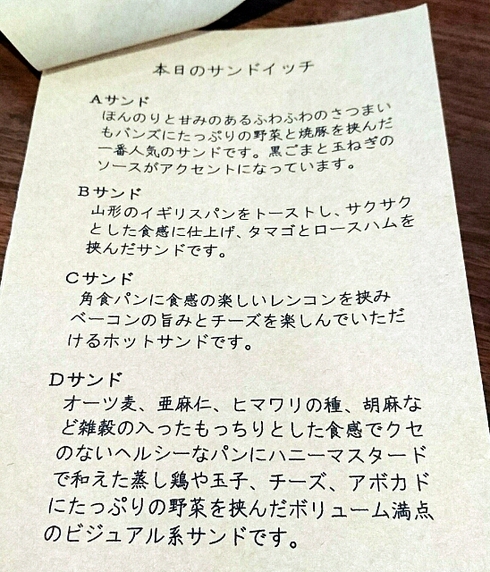 本日のサンドイッチ
Aサンド
ほんのりと甘みのあるふわふわのさつまい
もバンズにたっぷりの野菜と焼豚を挟んだ
一番人気のサンドです。黒ごまと玉ねぎの
ソースがアクセントになっています。
Bサンド
山形のイギリスパンをトーストし、サクサク
とした食感に仕上げ、タマゴとロースハムを
挟んだサンドです。
Cサンド
角食パンに食感の楽しいレンコンを挟み
ベーコンの旨みとチーズを楽しんでいただ
けるホットサンドです。
Dサンド
オーツ麦、亜麻仁、ヒマワリの種、胡麻な
ど雑穀の入ったもっちりとした食感でクセ
のないヘルシーなパンにハニーマスタード
で和えた蒸し鶏や玉子、チーズ、アボカド
にたっぷりの野菜を挟んだボリューム満点
のビジュアル系サンドです。